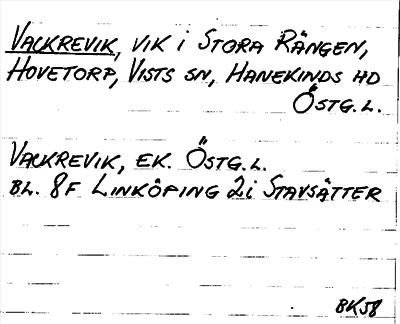 VACKREVIK, VIK I STORA RÄNGEN,
HOVETORP, VISTS SN, HANEKINDS HD
ÖSTG. L.
VACKREVIK, EK. ÖSTG. L.
BL. 8F LINKÖPING 2i STAVSÄTTER
BK58